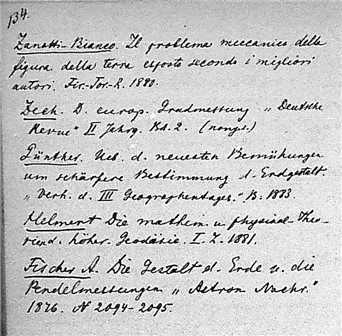 134.
Zanotti-Bianco. Il problema meccanico della
figura della terra esposto secondo i migliori
autori. Fir-Tor-R. 1880.
Zech. D. europ. Gradmessung „Deutsche
Revue" II Jahrg. Bd. 2.
Günther. Ueb. d. neuesten Bemühungen
um schärfere Bestimmung d. Erdgestalt
„Verh. d. III Geographentages - B. 1883.
Helmert Die mathem. u. physical. Theo-
d. höher. Geodäsie. I. L. 1881.
Fischer A. Die Gestalt d. Erde u. die
Pendelmessungen „Astron Nachr."
1876. N 2094-2095.